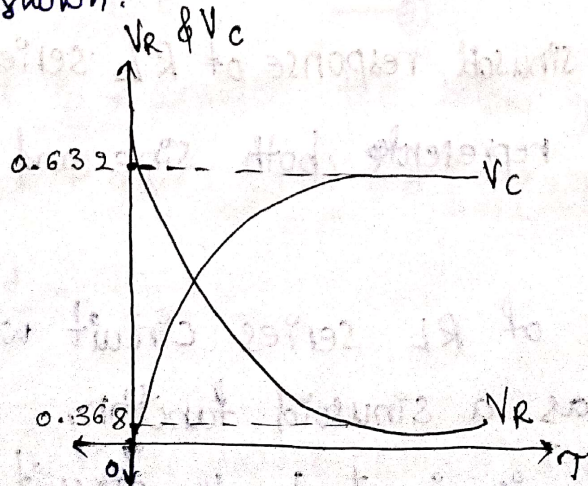 shown.
VR & VC
0.632
VC
0.368
VR
0
T